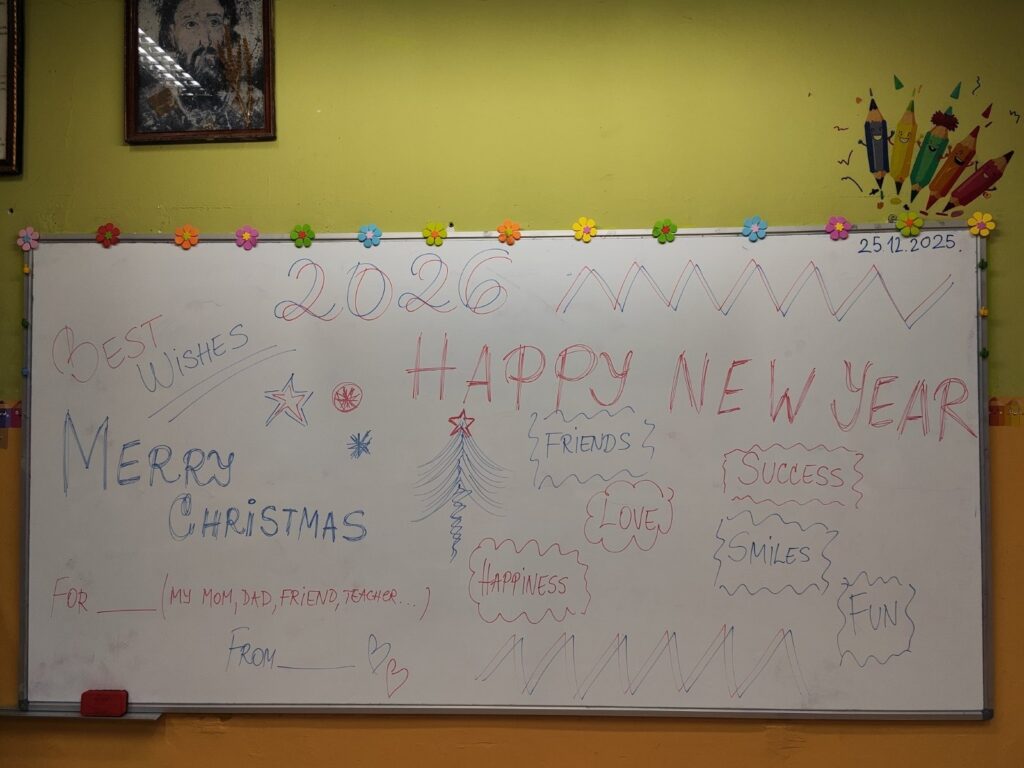 25.12.2025.
2026
BEST
WISHES
HAPPY NEW YEAR
MERRY
CHRISTMAS
FRIENDS
SUCCESS
LOVE
SMILES
HAPPINESS
FUN
FOR ______ (MY MOM, DAD, FRIEND, TEACHER...)
FROM ________